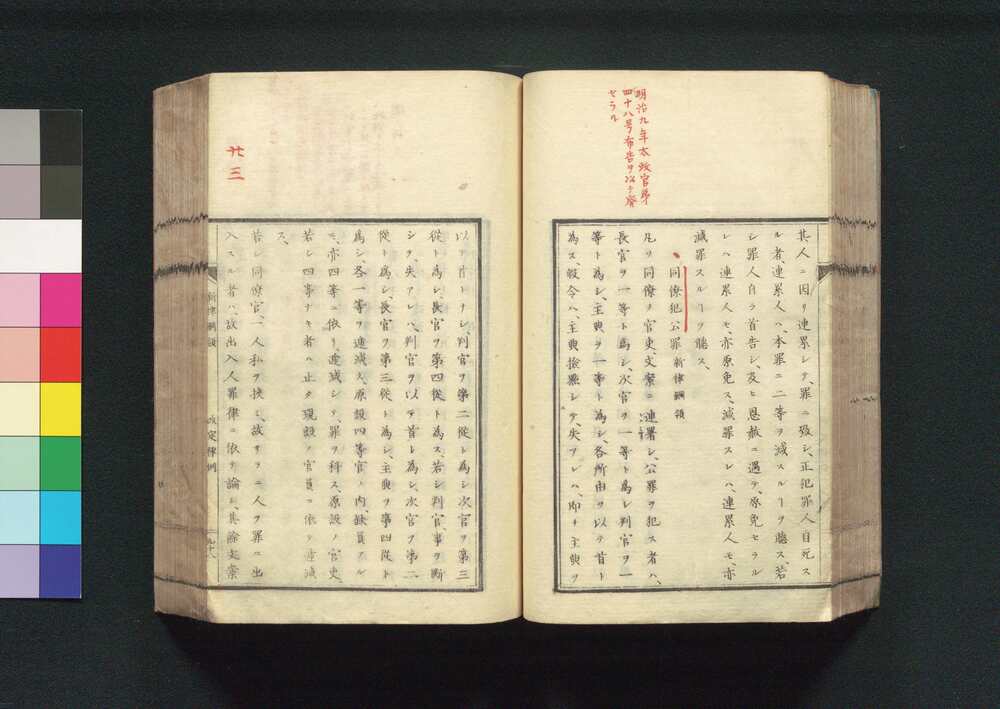 明治九年太政官第
四十八号布告ヲ以テ廃
セラル
其人ニ因リ連累シテ、罪ニ致シ、正犯罪人自死ス
ル者、連累人ハ、本罪ニ二等ヲ減スルヿヲ聴ス、若
シ罪人自ラ首告シ、及ヒ恩赦ニ遇テ、原免セラル
レハ、連累人モ、亦原免ス、減罪スレハ、連累人モ、亦
減罪スルヿヲ聴ス、
同僚犯公罪 新律綱領
凡ソ同僚ノ官吏、文案ニ連署シ、公罪ヲ犯ス者ハ、
長官ヲ一等ト為シ、次官ヲ一等ト為シ、判官ヲ一
等ト為シ、主典ヲ一等ト為シ、各所由ヲ以テ首ト
為ス、假令ハ、主典検案シテ、失アレハ、即チ主典ヲ
廿三
以テ首トナシ、判官ヲ第二從ト為シ、次官ヲ第三
從ト為シ、長官ヲ第四從ト為ス、若シ判官、事ヲ断
シテ、失アレハ、判官ヲ以テ首ト為シ、次官ヲ第二
從ト為シ、長官ヲ第三從ト為シ、主典ヲ第四從ト
為シ、各一等ヲ逓減ス、原設四等官ノ内、缺員アル
モ、亦四等ニ依リ、逓減シテ、罪ヲ科ス、原設ノ官吏、
若シ四等ナキ者ハ、止タ現設ノ官員ニ依テ逓減
ス、
若シ同僚官、一人私ヲ挟ミ、故サラニ人ヲ罪ニ出
入スル者ハ、故出入人罪律ニ依テ論シ、其餘文案
新律綱領
改定律例